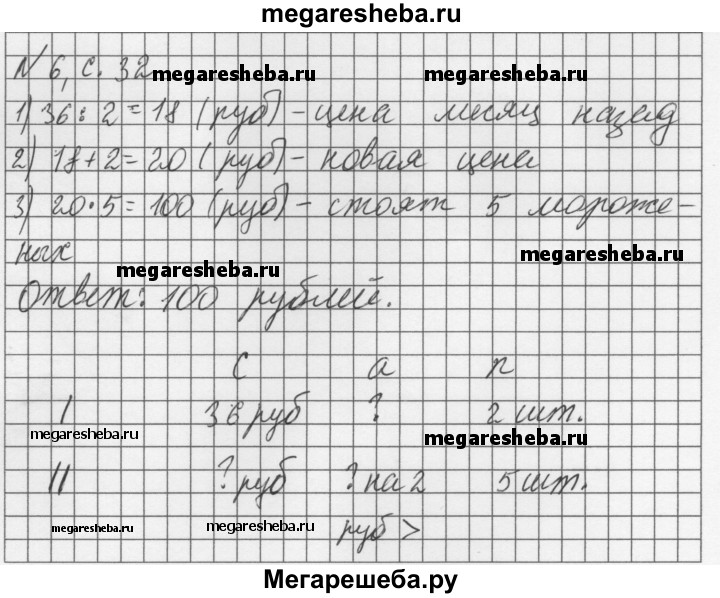 megaresheba.ru
N 6, с. 32
megaresheba.ru megaresheba.ru
1) 36 : 2 = 18 (руб) - цена месяц назад
2) 18 + 2 = 20 (руб) - новая цена
3) 20 · 5 = 100 (руб) - стоят 5 мороже-
ных
megaresheba.ru megaresheba.ru
Ответ: 100 рублей.
С а n
I 36 руб ? 2 шт.
megaresheba.ru megaresheba.ru
II ? руб ? на 2 5 шт.
megaresheba.ru megaresheba.ru руб >
Мегарешеба.ру